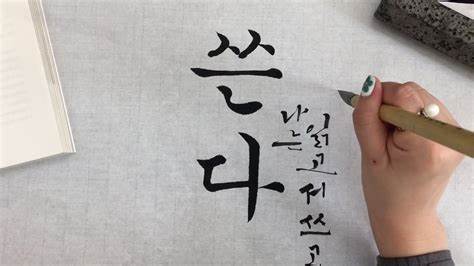 쓴다
나는
읽고서 쓰고